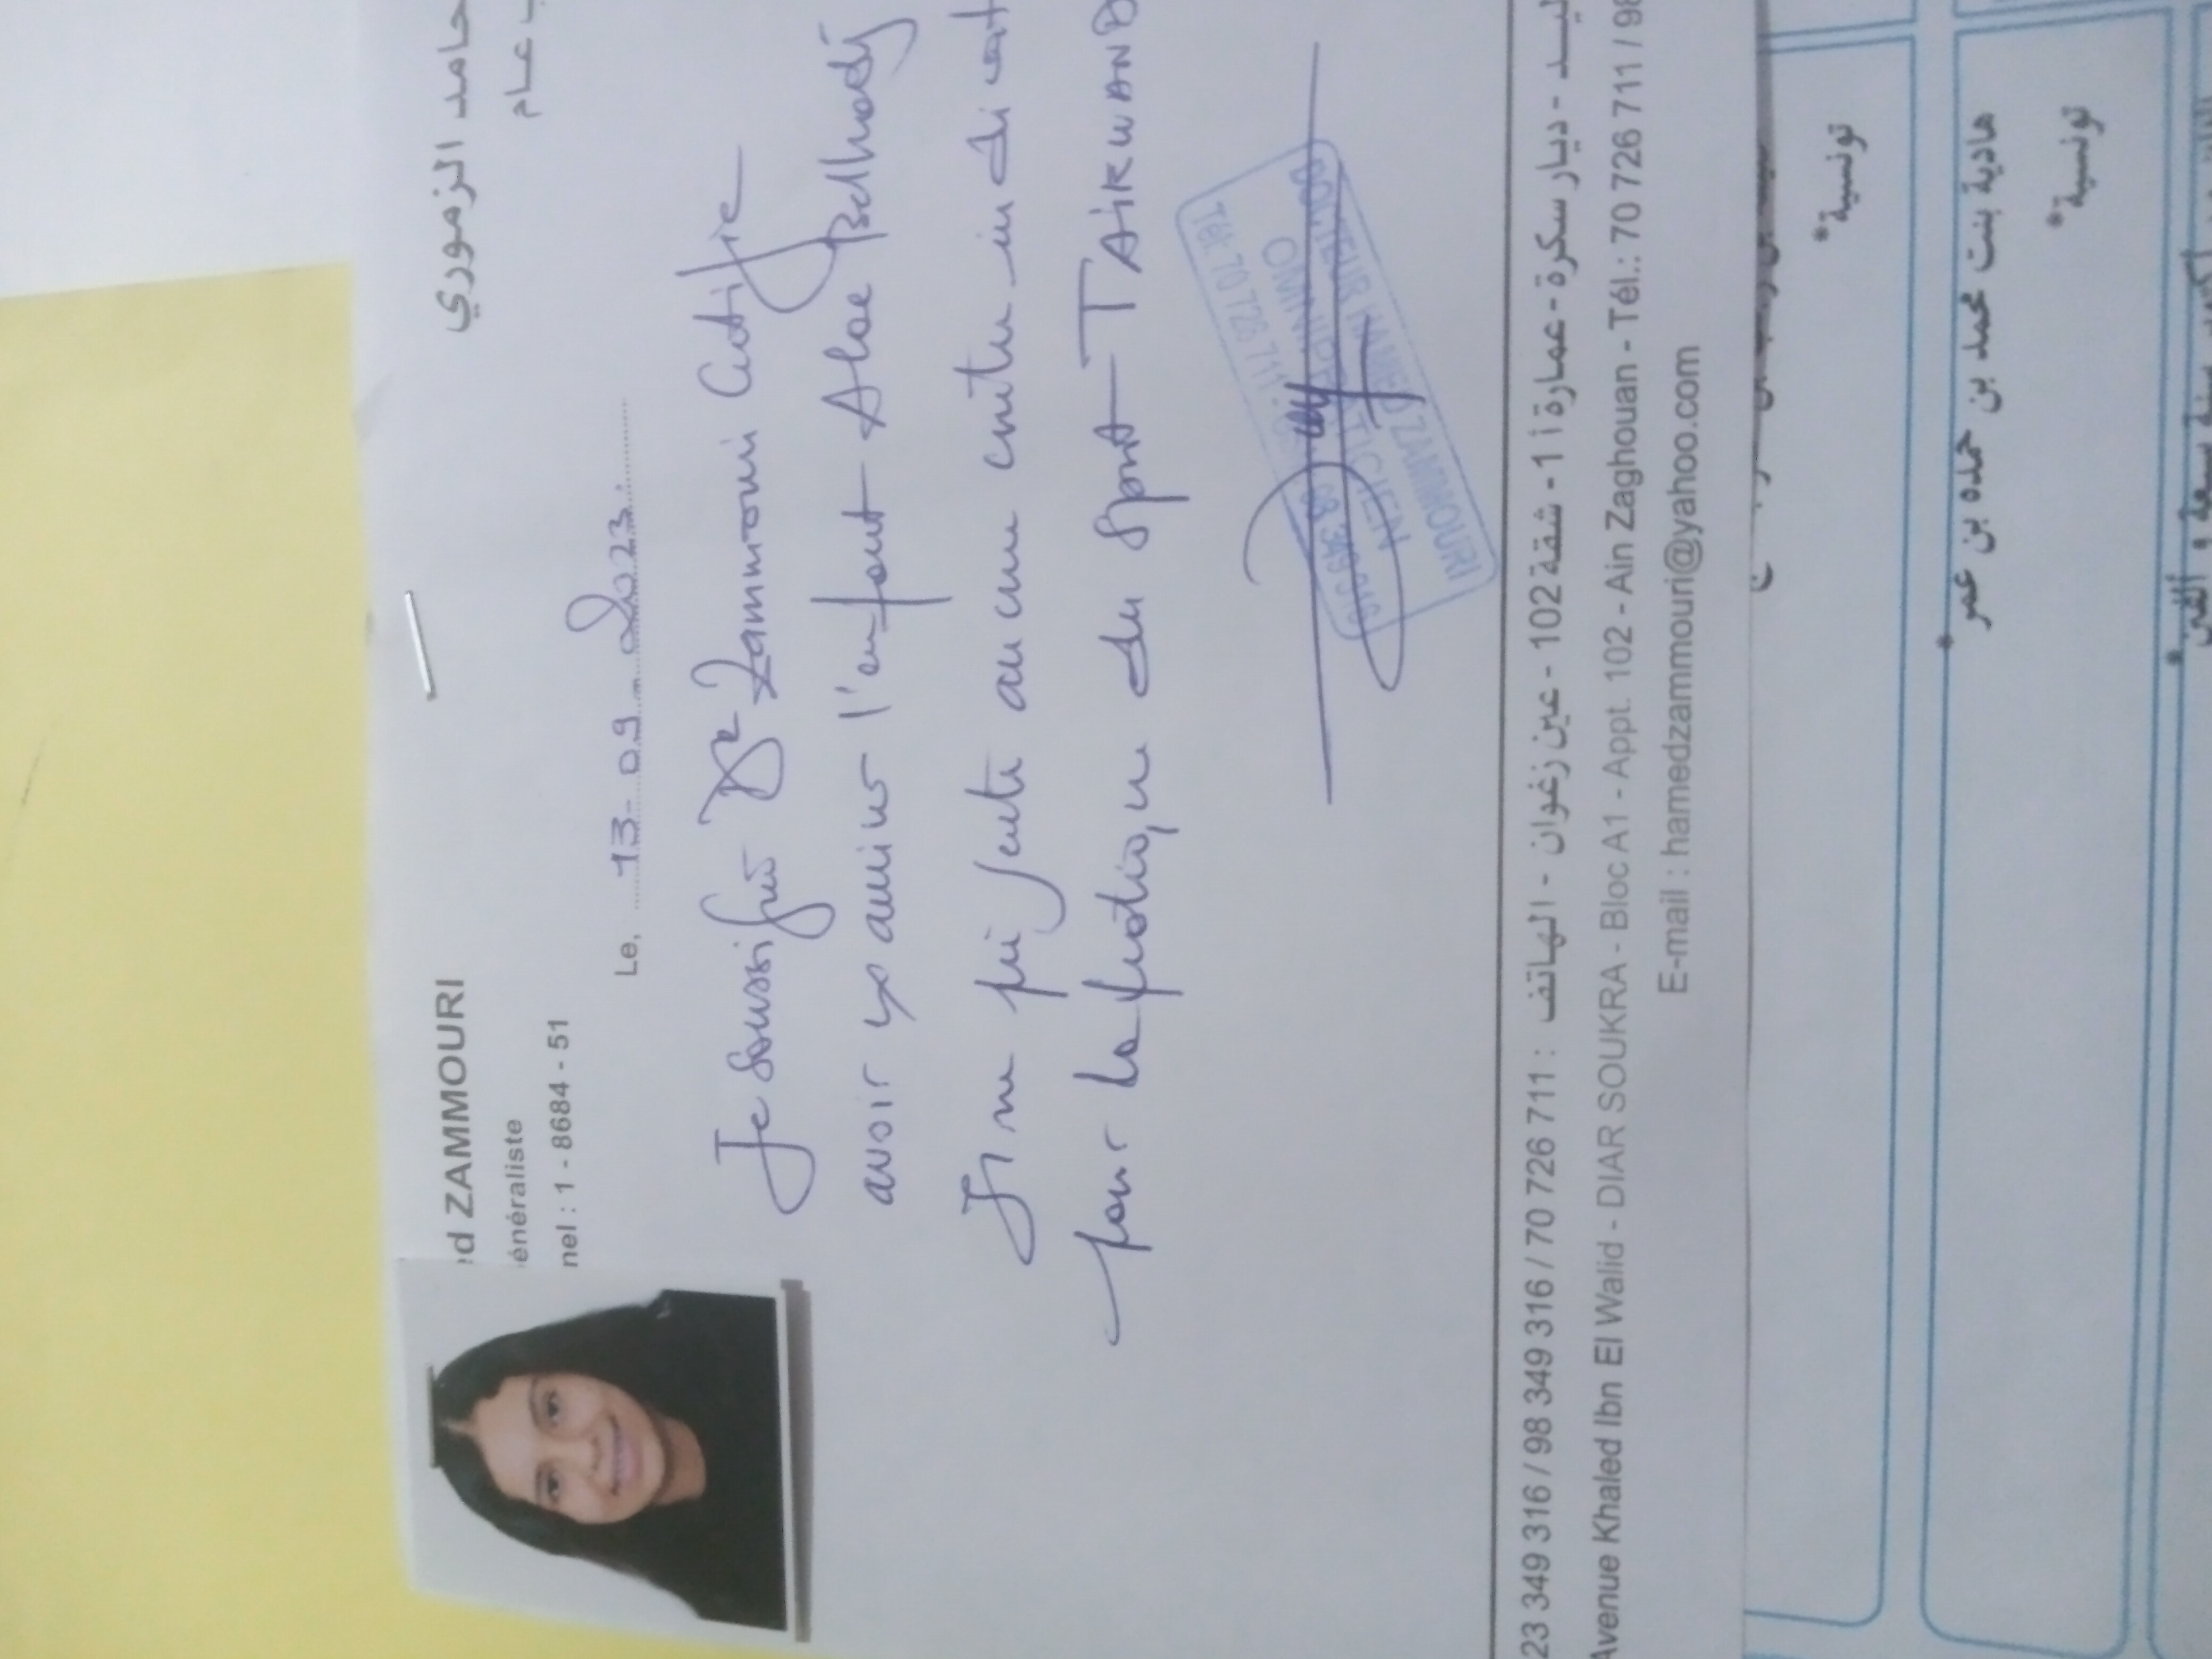 ed ZAMMOURI
حامد الزموري
énéraliste
ب عام
nel : 1 - 8684 - 51
Le, 13-09-2023
Je soussigné Dr Zammouri Certifie
avoir examiner l'enfant Alae Belhadj
Il ne présente aucune contre indicat
pour la pratique du sport TAIKWANDO
Tél: 70 726 711
OMNIPRATICIEN
ZAMMOURI
ليد - ديار سكرة - عمارة أ 1 - شقة 102 - عين زغوان - الهاتف : 23 349 316 / 98 349 316 / 70 726 711
Avenue Khaled Ibn El Walid - DIAR SOUKRA - Bloc A1 - Appt. 102 - Ain Zaghouan - Tél.: 70 726 711 / 98
E-mail : hamedzammouri@yahoo.com
تونسية*
هادية بنت محمد بن حمده بن عمر*
تونسية*